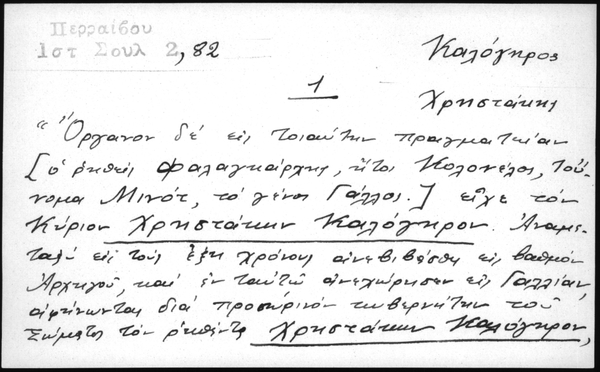 Περραίβου
Ιστ Σουλ 2, 82
Καλόγηρος
1
Χρηστάκης
"Ὄργανον δέ εἰς τοιαύτην πραγματείαν
[ὁ ῥηθείς Φαλαγγάρχης, ἤτοι Κολονέλος, τού-
νομα Μινότ, τό γένος Γάλλος.] εἶχε τόν
Κύριον Χρηστάκην Καλόγηρον. Ἀναμε-
ταξύ εἰς τούς ἕξη χρόνους ἀνεβιβάσθη εἰς βαθμόν
Ἀρχηγοῦ, καί ἐν ταυτῷ ἀνεχώρησεν εἰς Γαλλίαν,
ἀφήνωντας διά προσωρινόν κυβερνήτην τοῦ
Σώματος τόν ῥηθέντα Χρηστάκην Καλόγηρον,